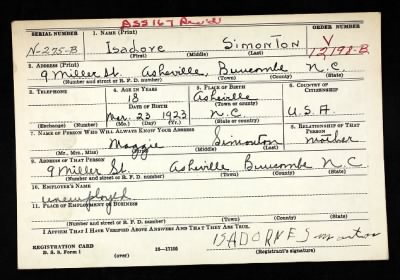 SERIAL NUMBER 1. NAME (Print) ORDER NUMBER
N-275-B Isadore Simonton V 12198-B
(First) (Middle) (Last)
2. ADDRESS (Print)
9 Miller St. Asheville, Buncombe N.C.
(Number and street or R. F. D. number) (Town) (County) (State)
3. TELEPHONE 4. AGE IN YEARS 5. PLACE OF BIRTH 6. COUNTRY OF CITIZENSHIP
18 Asheville
DATE OF BIRTH (Town or county)
Mar. 23 1923 N.C. U.S.A.
(Exchange) (Number) (Mo.) (Day) (Yr.) (State or country)
7. NAME OF PERSON WHO WILL ALWAYS KNOW YOUR ADDRESS 8. RELATIONSHIP OF THAT PERSON
Maggie Simonton mother
(Mr., Mrs., Miss) (First) (Middle) (Last)
9. ADDRESS OF THAT PERSON
9 Miller St. Asheville Buncombe N.C.
(Number and street or R. F. D. number) (Town) (County) (State)
10. EMPLOYER'S NAME
unemployed
11. PLACE OF EMPLOYMENT OR BUSINESS
(Number and street or R. F. D. number) (Town) (County) (State)
I AFFIRM THAT I HAVE VERIFIED ABOVE ANSWERS AND THAT THEY ARE TRUE.
ISADORE Simonton
REGISTRATION CARD
D. S. S. Form 1 (over) 16-17105 (Registrant's signature)